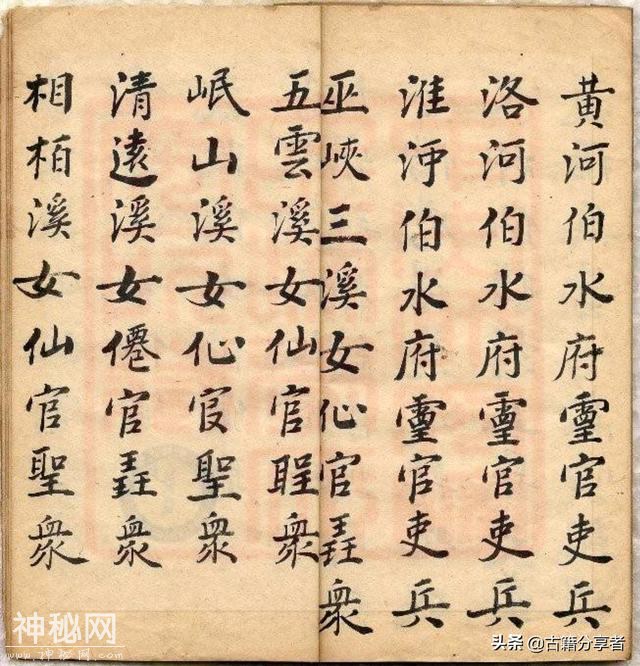 黃河伯水府靈官吏兵
洛河伯水府靈官吏兵
淮河伯水府靈官吏兵
巫峽三溪女仙官聖衆
五雲溪女仙官聖衆
岷山溪女仙官聖衆
清遠溪女僊官聖衆
相柏溪女仙官聖衆
神秘网
头条 @古籍分享者